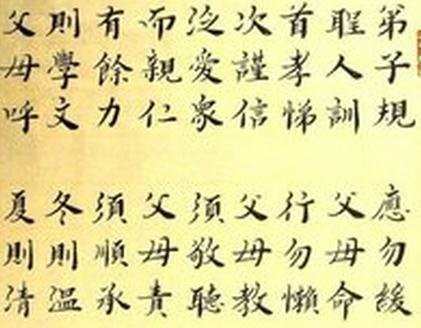 弟子規
聖人訓
首孝悌
次謹信
泛愛衆
而親仁
有餘力
則學文
父母呼
應勿緩
父母命
行勿懶
父母教
須敬聽
父母責
須順承
冬則溫
夏則清